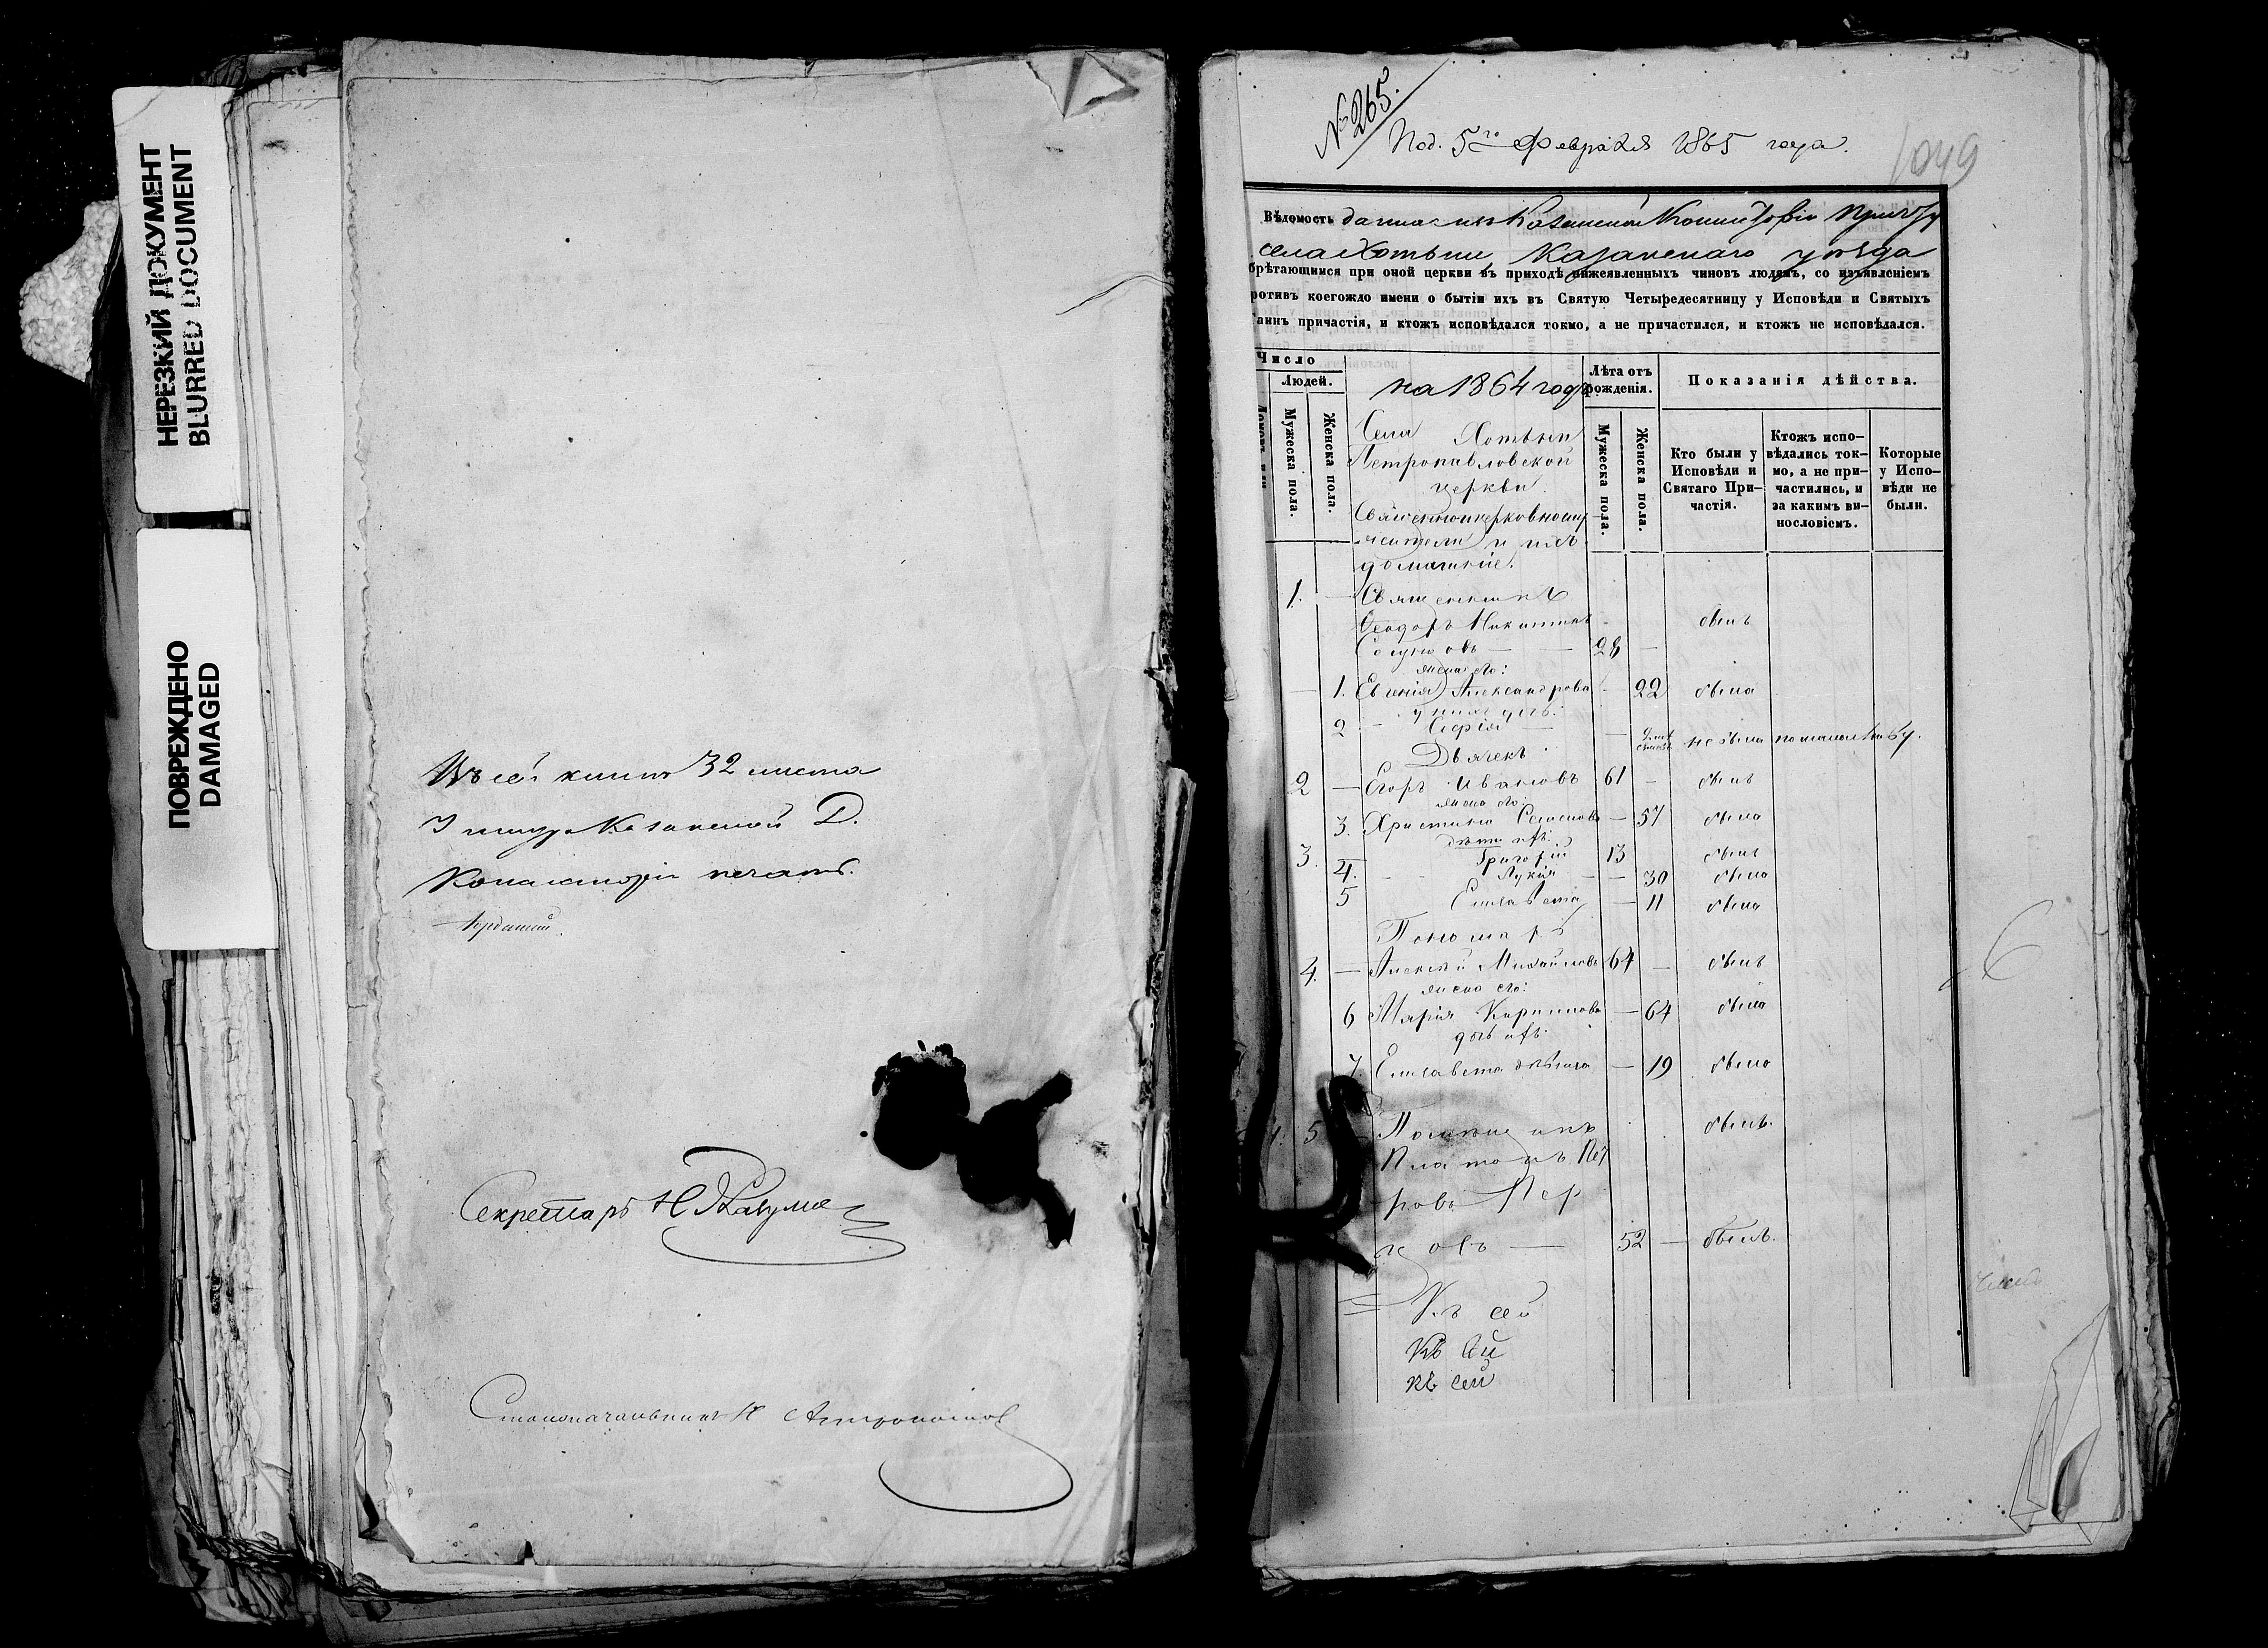 НЕРЕЗКИЙ ДОКУМЕНТ
BLURRED DOCUMENT
ПОВРЕЖДЕНО
DAMAGED
Въ сей книгѣ 32 листа
и шнур Казанской Д.
Консисторіи печать.
Секретарь Н
Столоначальникъ
№ 265.
Под. 5го Февраля 1865 года.
1049
Вѣдомость данная изъ Казанской Консисторіи причту
села Хотьни, Казанскаго уѣзда
брѣтающимся при оной церкви въ приходѣ нижеявленныхъ чиновъ людямъ, со изъявленіемъ
ротивъ коегождо имени о бытіи ихъ въ Святую Четыредесятницу у Исповѣди и Святыхъ
аинъ причастія, и ктожъ исповѣдался токмо, а не причастился, и ктожъ не исповѣдался.
Число
Людей.
Мужеска пола.
Женска пола.
на 1864 годъ
Лѣта отъ рожденія.
Мужеска пола.
Женска пола.
Показанія дѣйства.
Кто были у Исповѣди и Святаго Причастія.
Ктожъ исповѣдались токмо, а не причастились, и за какимъ винословіемъ.
Которые у Исповѣди не были.
Села Хотьни
Петропавловской
церкви
Священноцерковнослу
жители и ихъ
домашніе.
1. — Священникъ
Ѳеодоръ Никитинъ былъ
— — 28 —
жена его:
— 1. Евгенія Александрова — 22 была
у нихъ дочь:
2 — Софія — не была по малолѣтству.
Дьячекъ
2 — Егоръ Ивановъ 61 — былъ
жена его:
3. Христина Семенова — 57 была
дѣти ихъ:
3. Григорій 13 былъ
4. — Лукія — — 30 была
5 Елисавета — 11 была
Пономарь
4. — Алексѣй Михайловъ 64 — былъ
жена его:
6 Марія Кириллова — 64 была
дочь ихъ:
7. Елисавета дѣвица — 19 была
5 Помѣщикъ былъ.
Платонъ Пет
ровъ Пер
цовъ — 52 — былъ.
Къ сей
Къ сей
къ сей
6